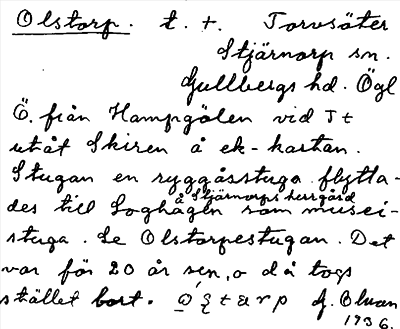 Olstorp. t. t. Torvsäter
Stjärnorp sn.
Gullbergs hd. Ögl
Ö. från Hampgölen vid Tt
utåt Skiren å ek-kartan.
Stugan en ryggåsstuga flytta-
å Stjärnorps herrgård
des till Loghagen som musei-
stuga. Se Olstorpestugan. Det
var för 20 år sen, o då togs
stället bort.